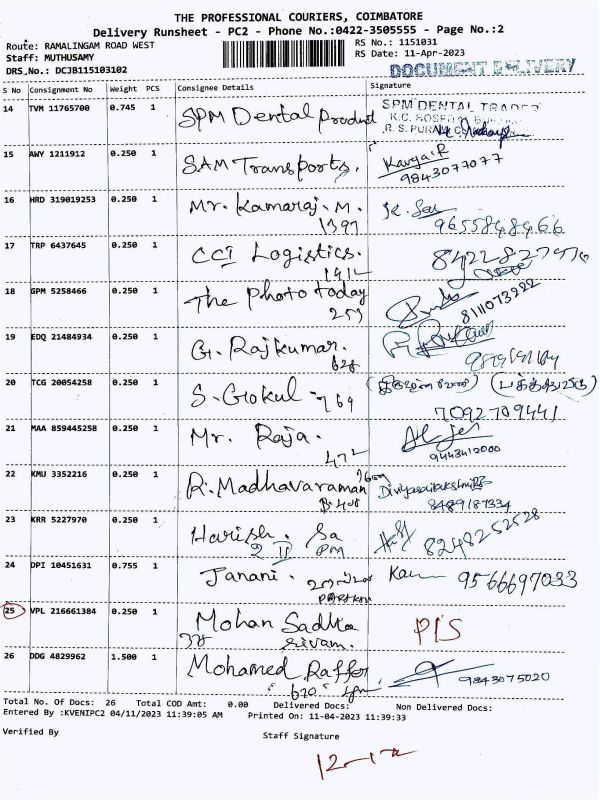 THE PROFESSIONAL COURIERS, COIMBATORE
Delivery Runsheet - PC2 - Phone No.:0422-3505555 - Page No.:2
Route: RAMALINGAM ROAD WEST
RS No.: 1151031
Staff: MUTHUSAMY
RS Date: 11-Apr-2023
DRS No.: DCJB115103102
DOCUMENT DELIVERY
S No Consignment No Weight PCS Consignee Details Signature
14 TVM 11765700 0.745 1 SPM Dental Product
SPM DENTAL
R. S. PURAM
15 AWY 1211912 0.250 1 SAM Transports.
9843077077
16 HRD 319019253 0.250 1 Mr. Kamaraj. M.
1397
9655848466
17 TRP 6437645 0.250 1 CCI Logistics.
1912
18 GPM 5258466 0.250 1 The Photo today
259
8111073222
19 EDQ 21484934 0.250 1 G. Rajkumar.
628
20 TCG 20054258 0.250 1 S. Gokul - 769
7092709441
21 MAA 859445258 0.250 1 Mr. Raja.
472
9443412000
22 KMU 3352216 0.250 1 R. Madhavaraman
8489187334
23 KRR 5227970 0.250 1 Harish. Sa
2 II PM
8248252528
24 DPI 10451631 0.755 1 Janani.
9566697033
25 VPL 216661384 0.250 1 Mohan Sadha
sivam.
P/S
26 DDG 4829962 1.500 1 Mohamed Raffer
670
9843075020
Total No. Of Docs: 26 Total COD Amt: 0.00 Delivered Docs: Non Delivered Docs:
Entered By :KVENIPC2 04/11/2023 11:39:05 AM Printed On: 11-04-2023 11:39:33
Verified By
Staff Signature